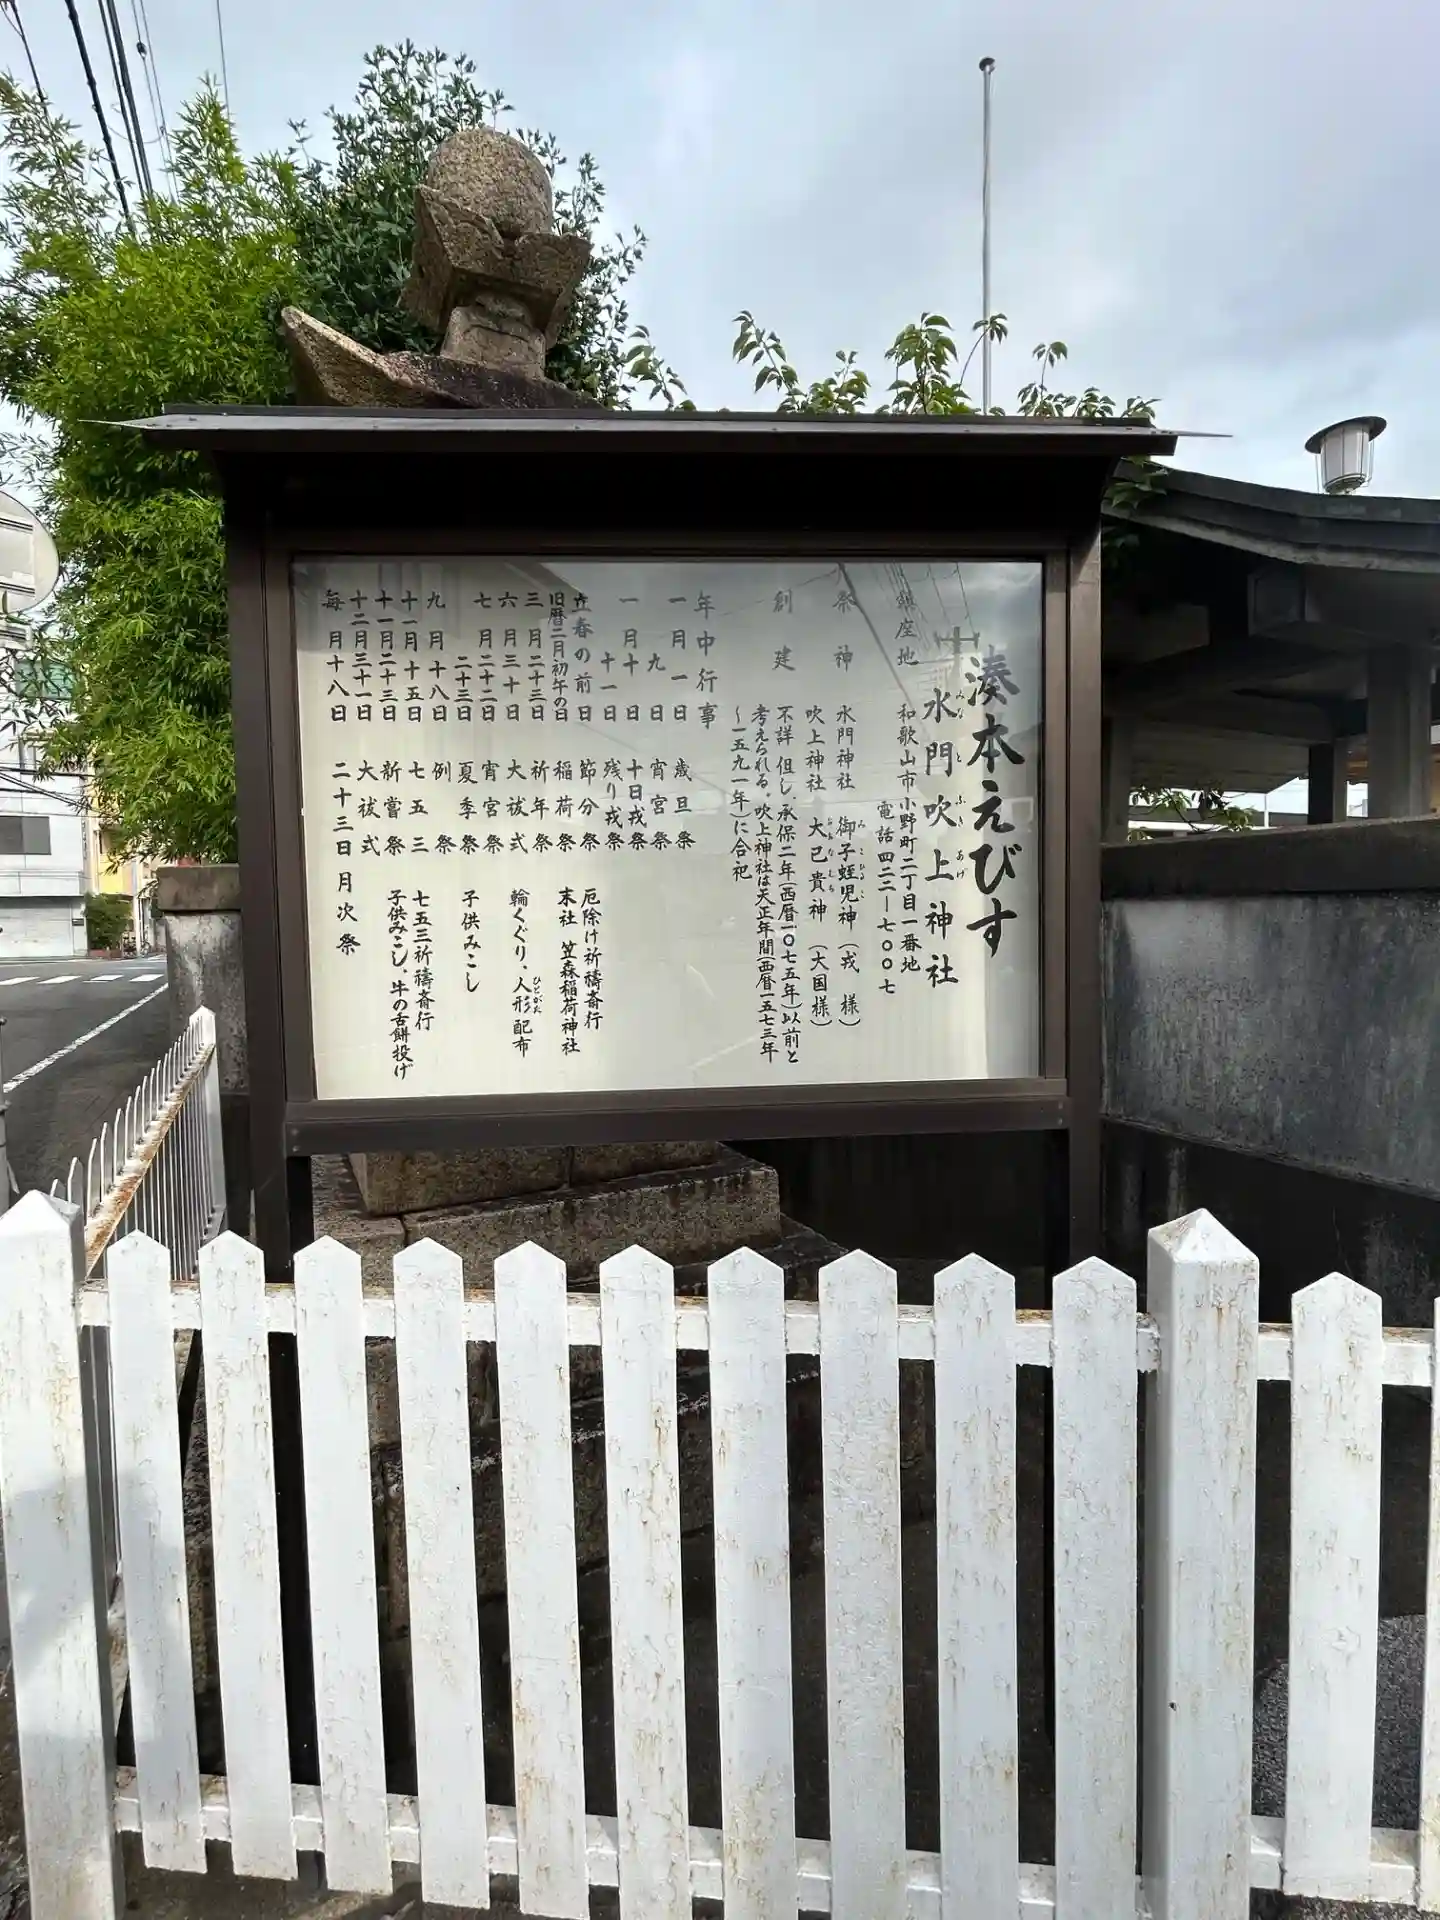 湊本えびす
水門吹上神社
みなと ふきあげ
鎮座地 和歌山市小野町二丁目一番地
電話四二二ー七〇〇七
祭神 水門神社 御子蛭児神(戎様)
みこひるこ
吹上神社 大己貴神(大国様)
おおなむち
創建 不詳 但し、承保二年(西暦一〇七五年)以前と
考えられる。吹上神社は天正年間(西暦一五七三年
〜一五九一年)に合祀
年中行事
一月一日 歳旦祭
九日 宵宮祭
一月十日 十日戎祭
十一日 残り戎祭
立春の前日 節分祭 厄除け祈禱斎行
旧暦二月初午の日 稲荷祭 末社 笠森稲荷神社
三月二十三日 祈年祭
六月三十日 大祓式 輪くぐり、人形配布
ひとがた
七月二十二日 宵宮祭
二十三日 夏季祭 子供みこし
九月十八日 例祭
十一月十五日 七五三 七五三祈禱斎行
十一月二十三日 新嘗祭 子供みこし、牛の舌餅投げ
十二月三十一日 大祓式
毎月十八日 二十三日 月次祭